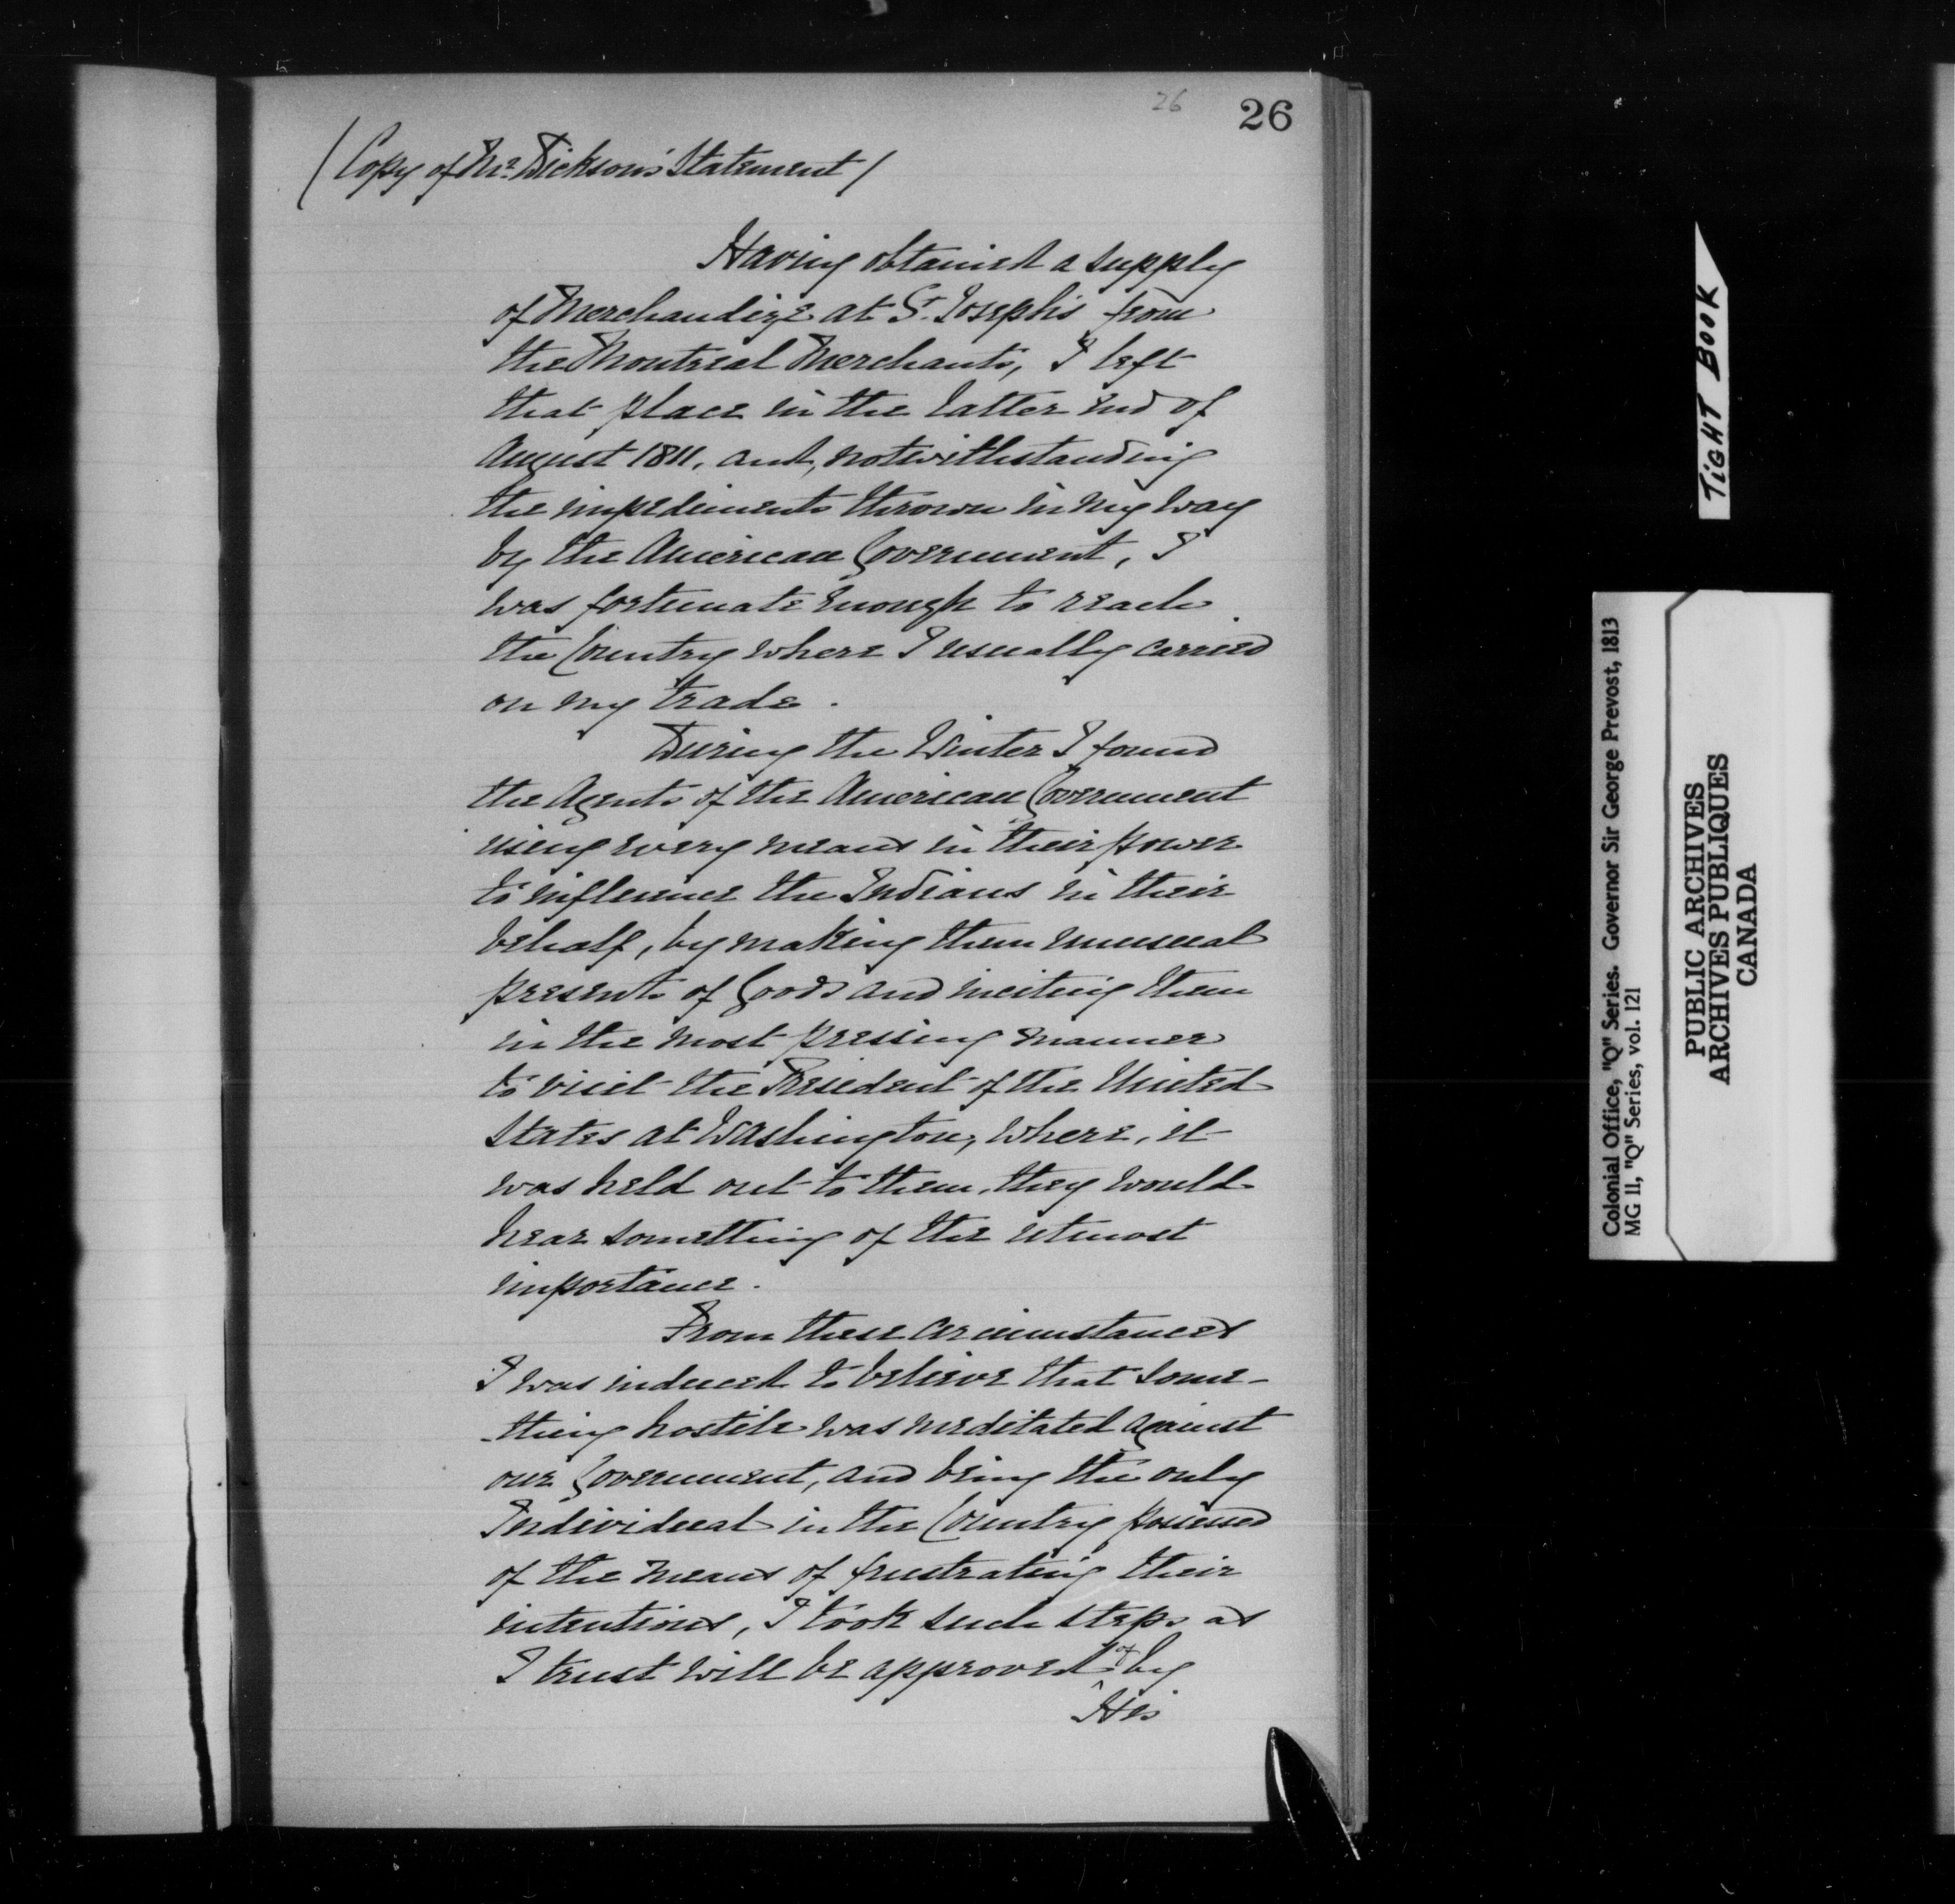 26
26
(Copy of Mr. Dickson's Statement)
Having obtained a supply
of Merchandize at St. Joseph's from
the Montreal Merchants, I left
that place in the latter end of
August 1811, and, notwithstanding
the impediments thrown in my way
by the American Government, I
was fortunate enough to reach
the Country where I usually carried
on my trade.
During the Winter I found
the Agents of the American Government
using every means in their power
to influence the Indians in their
behalf, by making them unusual
presents of Goods and inviting them
in the most pressing manner
to visit the President of the United
States at Washington, where, it
was held out to them, they would
hear something of the utmost
importance.
From these circumstances
I was induced to believe that some-
-thing hostile was meditated against
our Government, and being the only
Individual in the Country possessed
of the means of frustrating their
intentions, I took such steps as
I trust will be approved of by
His
TIGHT BOOK
Colonial Office, "Q" Series. Governor Sir George Prevost, 1813
MG 11, "Q" Series, vol. 121
PUBLIC ARCHIVES
ARCHIVES PUBLIQUES
CANADA